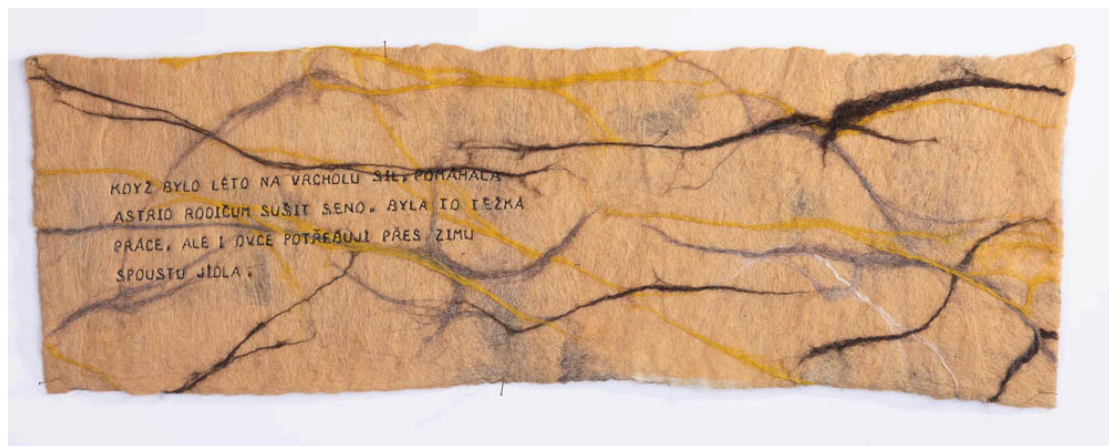 KDYŽ BYLO LÉTO NA VRCHOLU SIL, POMÁHALA
ASTRID RODIČUM SUŠIT SENO. BYLA TO TĚŽKÁ
PRÁCE, ALE I OVCE POTŘEBUJÍ PŘES ZIMU
SPOUSTU JÍDLA.